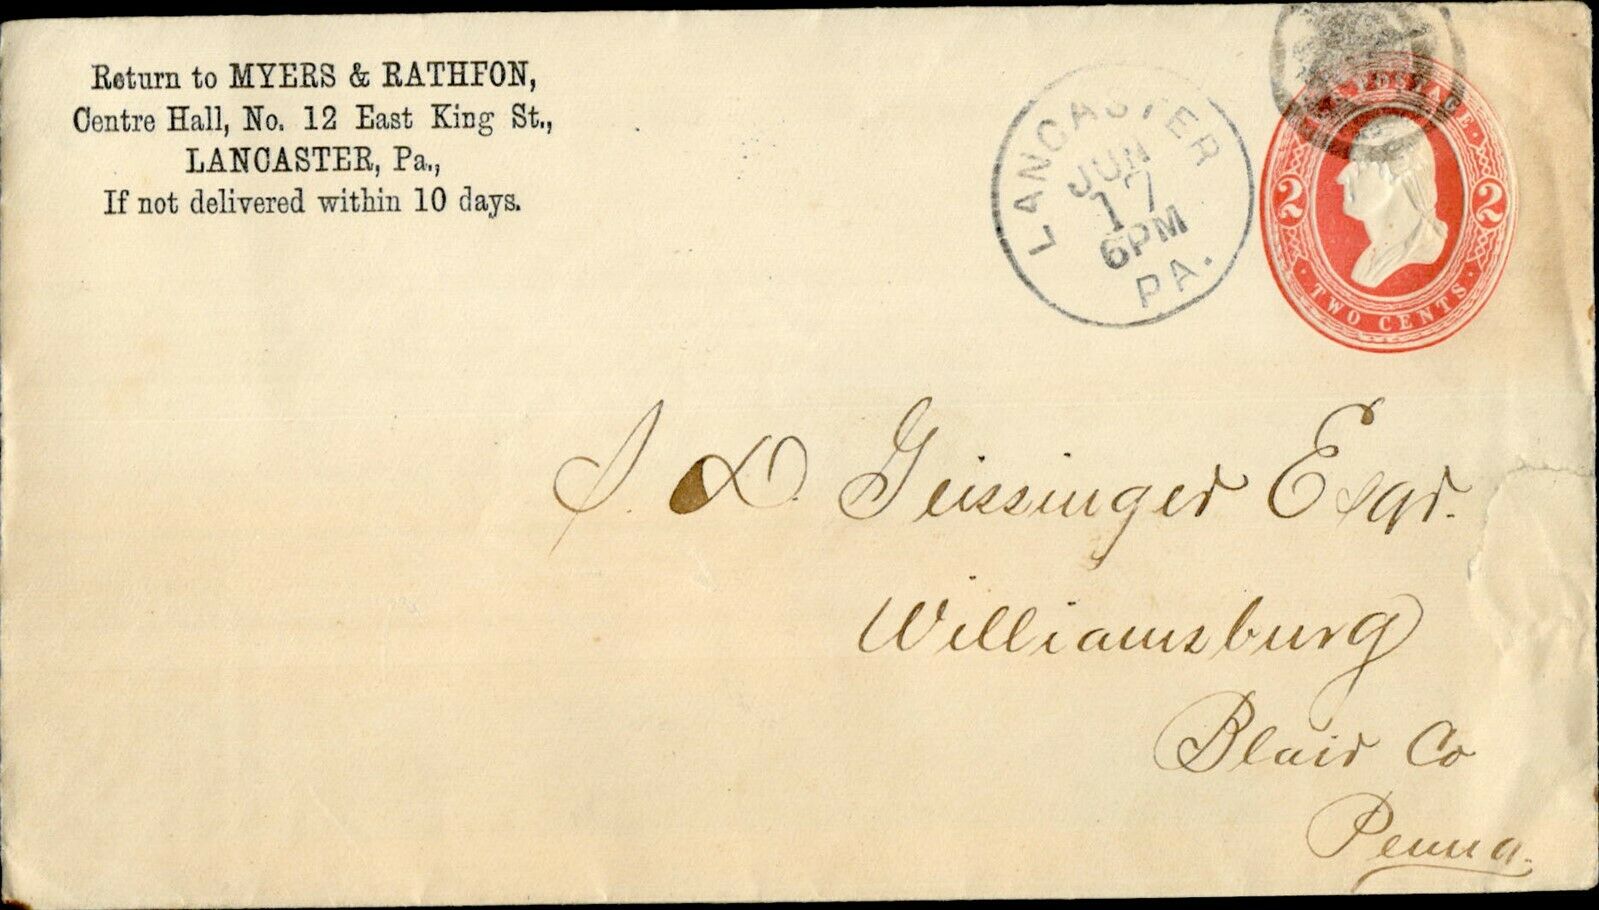 Return to MYERS & RATHFON,
Centre Hall, No. 12 East King St.,
LANCASTER, Pa.,
If not delivered within 10 days.
LANCASTER
JUN
17
6PM
PA.
POSTAGE
2 2
TWO CENTS
Geissinger Esqr.
Williamsburg
Blair Co
Penna.